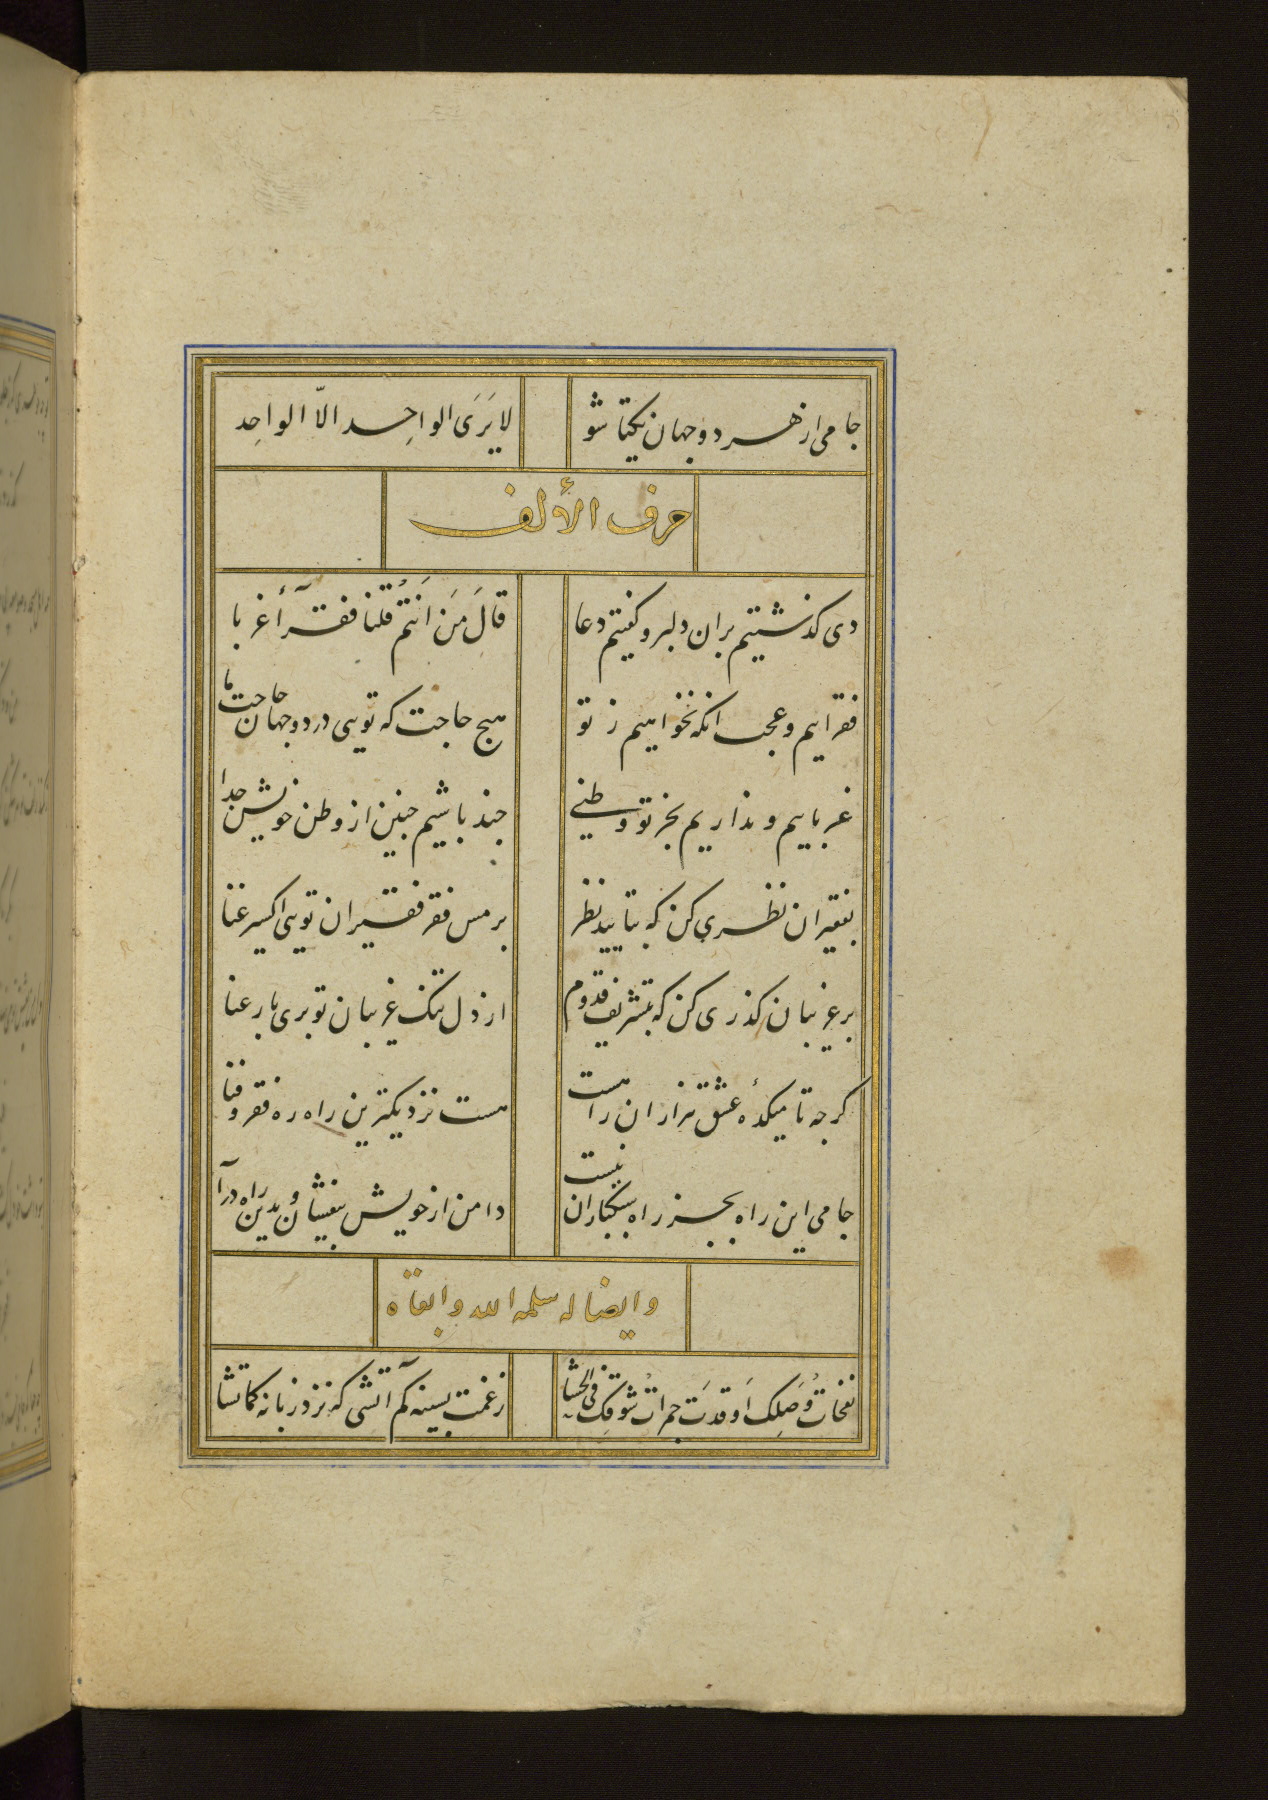 جامی از هر دو جهان یکتا شو
لا یَرَی الواحِد الاّ الواحِد
حرف الألف
دی کذشتیم بران دلبر و کفتیم دعا
قالَ مَن اَنتُم قلنا فقرآ أغربا
فقراییم و عجب انکه نخواهیم ز تو
هیچ حاجت که تویی در دو جهان حاجت ما
غرباییم و نداریم بجز تو وطنی
جند باشیم جنین از وطن خویش جدا
بفقیران نظری کن که بتایید نظر
بر مس فقر فقیران تویی اکسیر غنا
بر غریبان کذری کن که بتشریف قدوم
از دل تنک غریبان تو بری بار عنا
کرجه تا میکدهٔ عشق هزاران راهست
هست نزدیکترین راه ره فقر و فنا
جامی این راه بجز راه سبکباران نیست
دامن از خویش بیفشان و بدین راه درآ
و ایضا له سلمه الله و ابقاه
نفحاتُ وَصلِک اَوقدَت جمراتِ شوقِک فی الحشا
ز غمت بسینه کم آتشی که نزد زبانه کما تشا